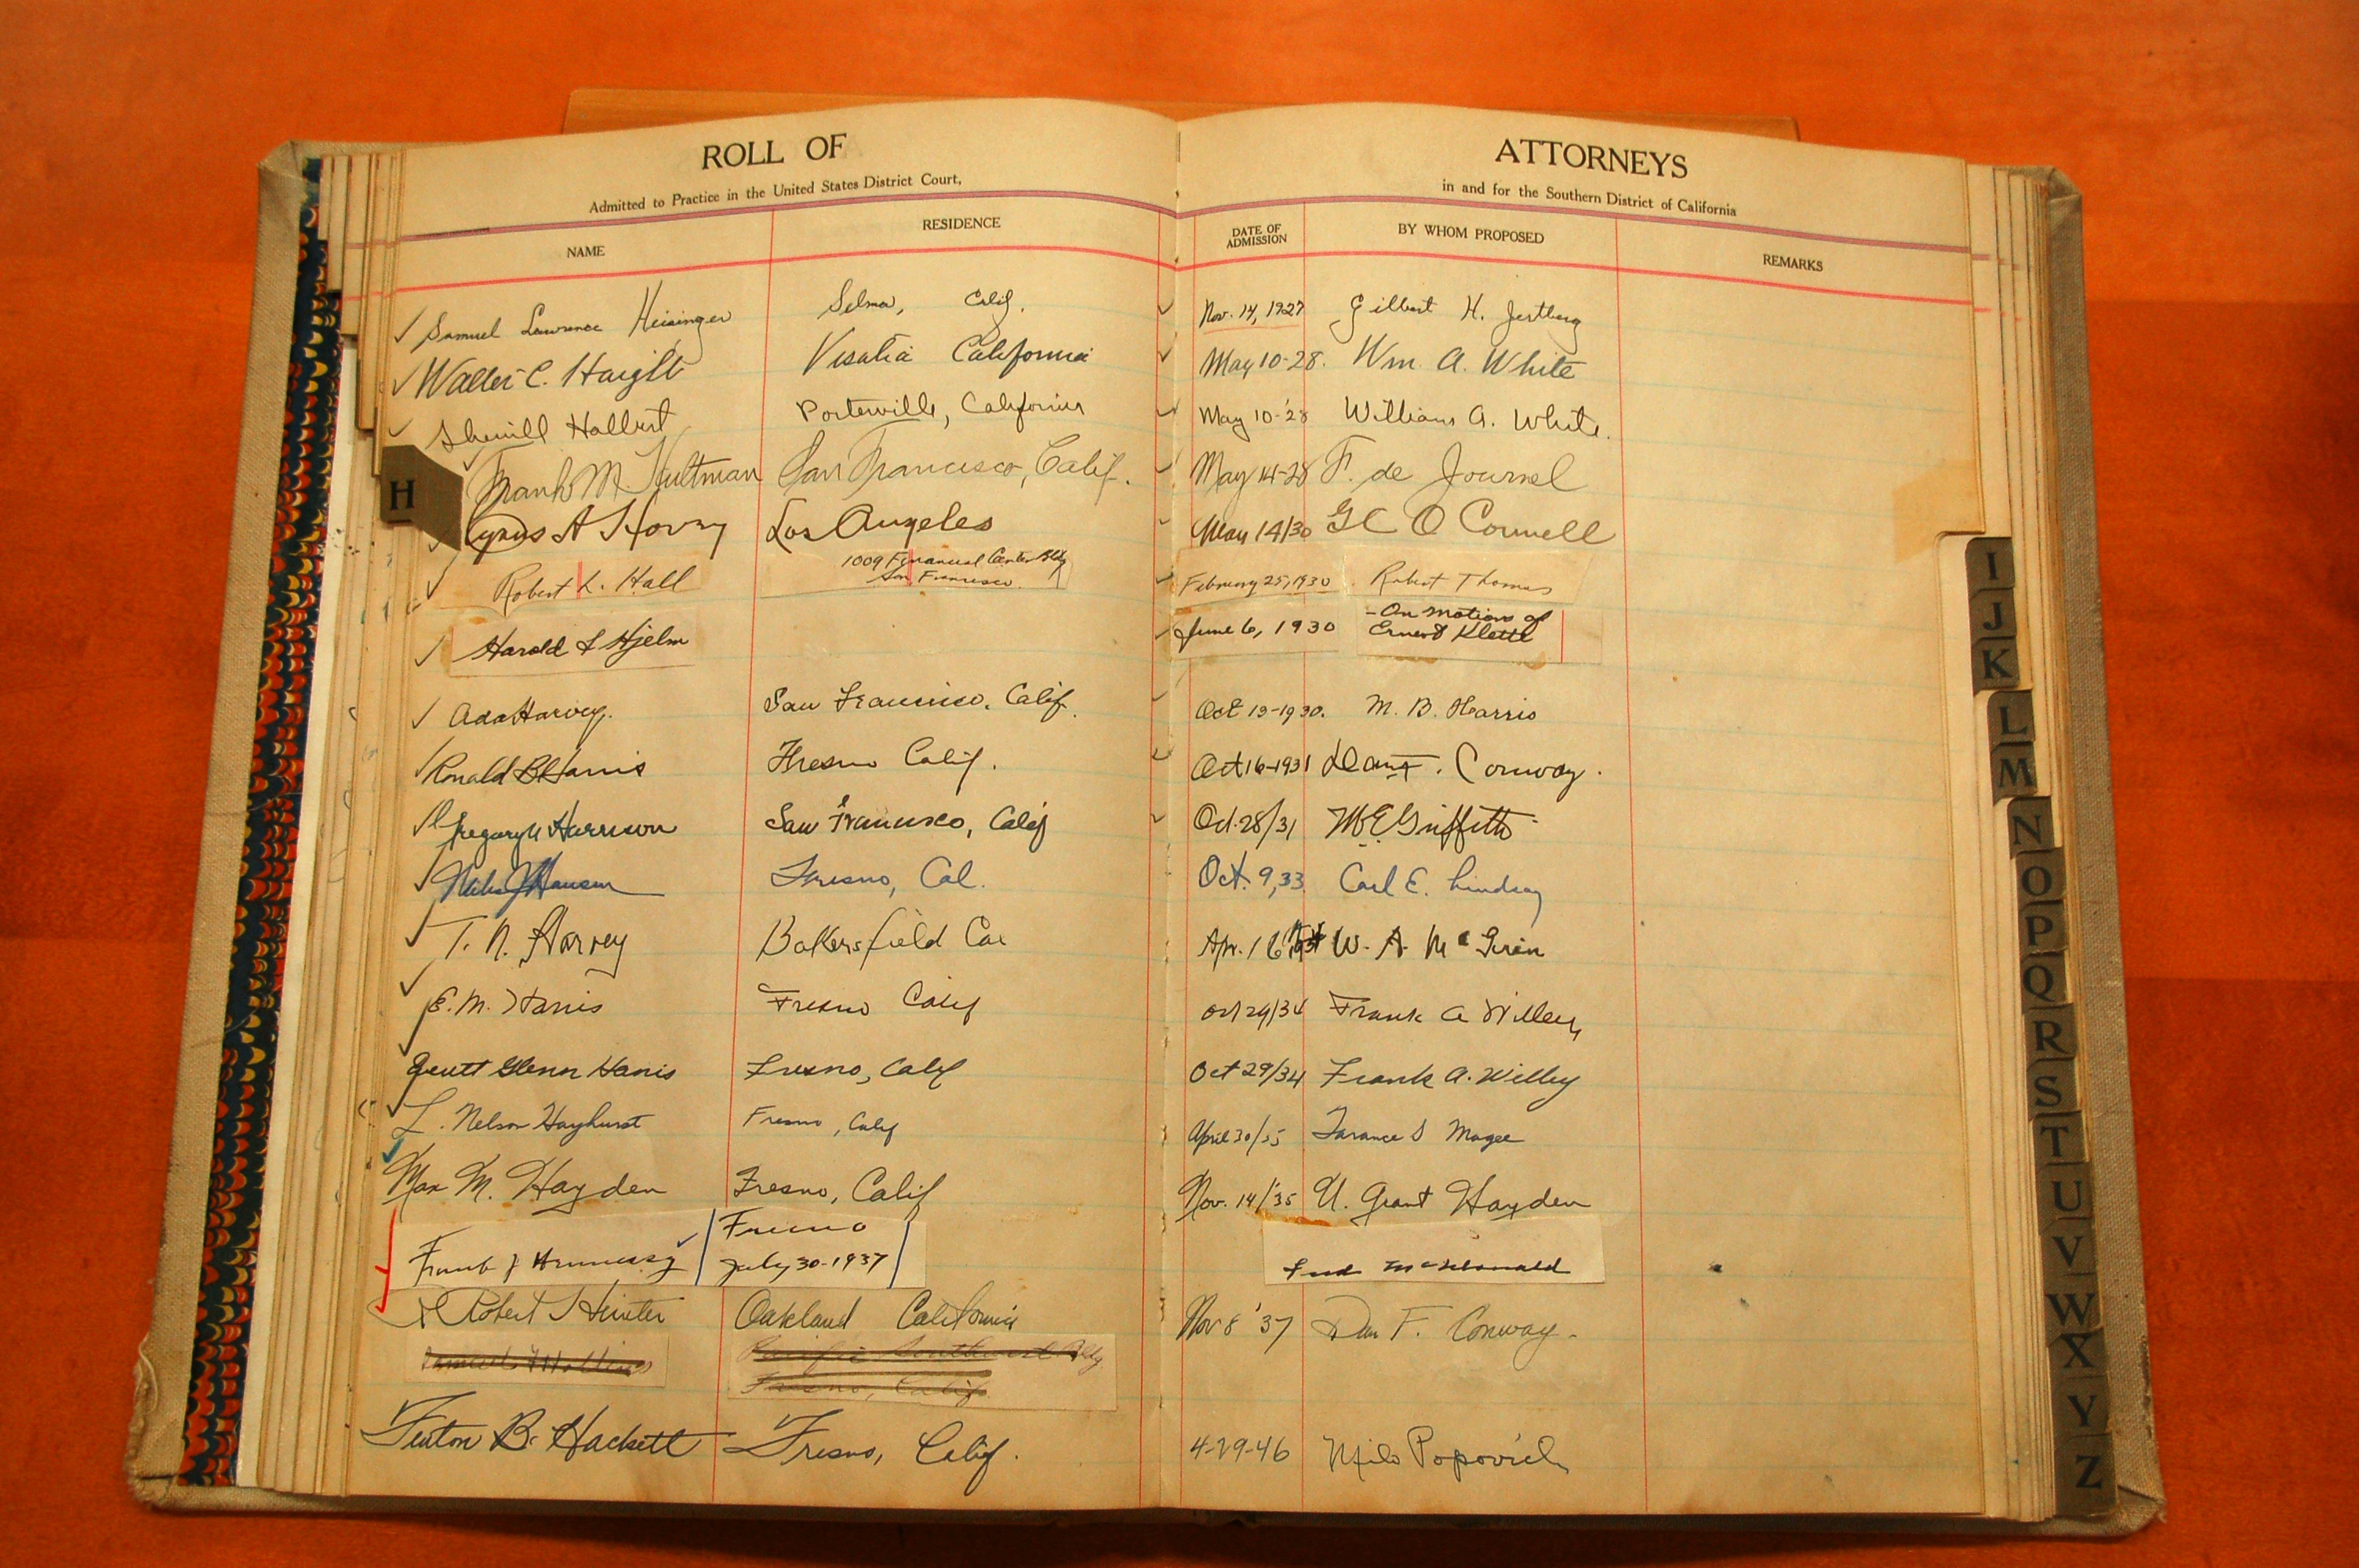 ROLL OF ATTORNEYS
Admitted to Practice in the United States District Court, in and for the Southern District of California
NAME RESIDENCE DATE OF ADMISSION BY WHOM PROPOSED REMARKS
Samuel Lawrence Heisinger Selma, Calif. Nov. 14, 1927 Gilbert H. Jertberg
Walter C. Haight Visalia California May 10-28. Wm. A. White
Sherrill Halbert Porterville, California May 10-'28 William A. White.
Frank M Hultman San Francisco, Calif. May 14-28 F. de Journel
Cyrus A Hovey Los Angeles May 14/30 G C O Connell
Robert L. Hall 1009 Financial Center Bldg
San Francisco. February 25, 1930 Robert Thomas
Harold L Hjelm June 6, 1930 - On motion of
Ernest Klette
Ada Harvey. San Francisco, Calif. Oct 13-1930. M. B. Harris
Ronald B Harris Fresno Calif. Oct 16-1931 Dan F. Conway.
Gregory A Harrison San Francisco, Calif Oct. 28/31 M E Griffith
Hansen Fresno, Cal. Oct. 9, 33 Carl E. Lindsay
T. N. Harvey Bakersfield Cal Apr. 16 W. A. McGinn
E. M. Harris Fresno Calif Oct 29/34 Frank A Willey
Glenn Harris Fresno, Calif Oct 29/34 Frank A. Willey
L. Nelson Hayhurst Fresno, Calif April 30/35 Magee
Max M. Hayden Fresno, Calif Nov. 14/'35 U. Grant Hayden
Frank J Hennessy Fresno
July 30-1937 McDonald
Robert Hunter Oakland California Nov 8 '37 Dan F. Conway.
Samuel Hollins Pacific Southwest Bldg
Fresno, Calif
Fenton B. Hackett Fresno, Calif. 4-29-46 Milo Popovich
H
I
J
K
L
M
N
O
P
Q
R
S
T
U
V
W
X
Y
Z